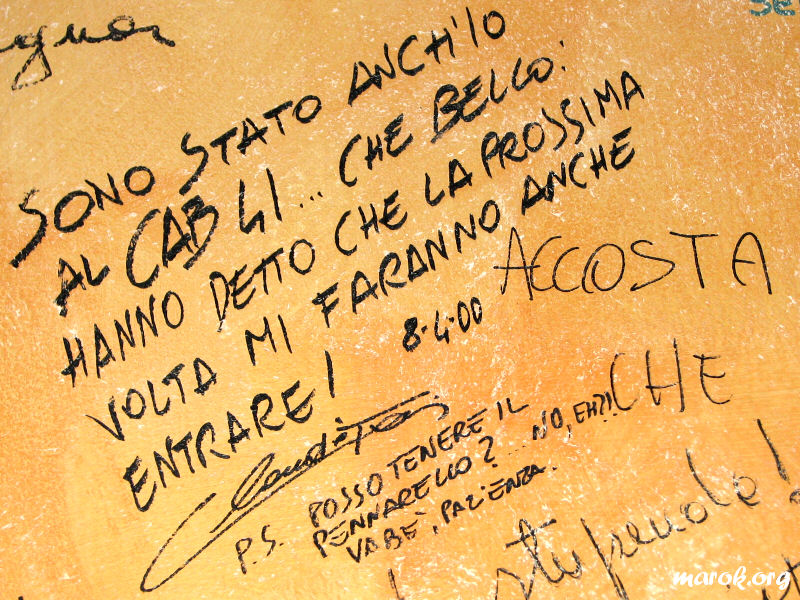 SONO STATO ANCH'IO
AL CAB 41... CHE BELLO:
HANNO DETTO CHE LA PROSSIMA
VOLTA MI FARANNO ANCHE
ENTRARE!
8-4-00
ACCOSTA
CHE
P.S. POSSO TENERE IL
PENNARELLO? ...NO, EH?!!
VABE', PAZIENZA.
stupendo!
marok.org